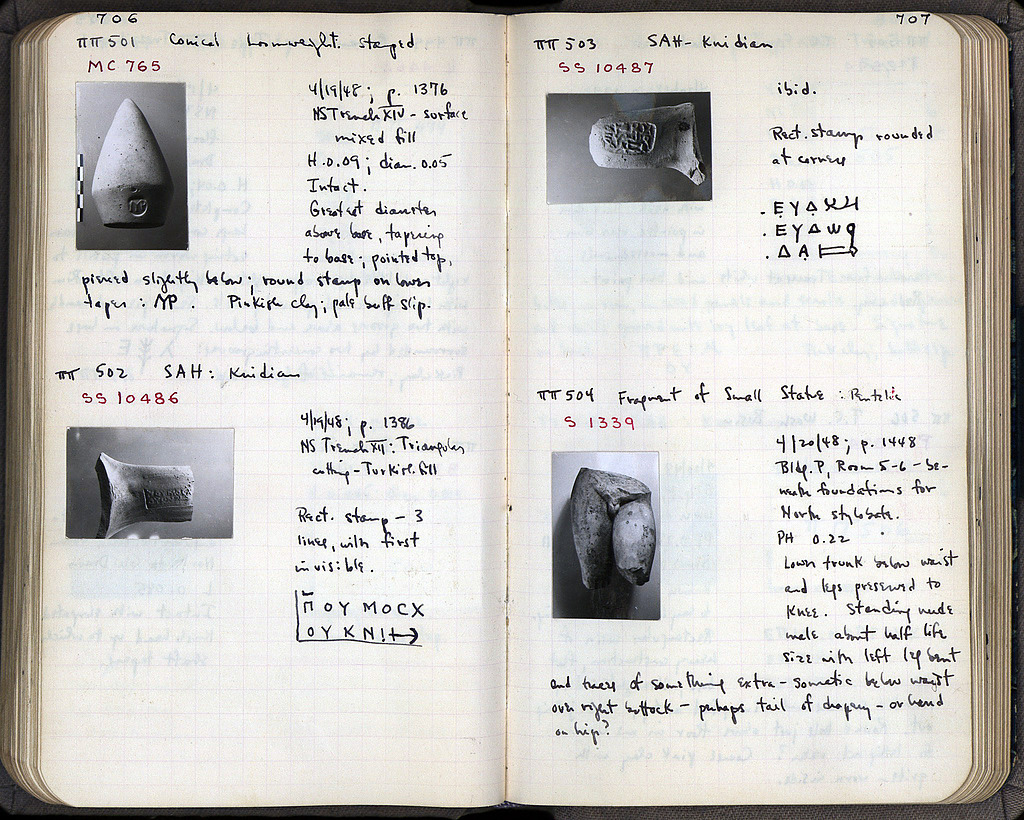 706
ΠΠ 501 Conical loomweight. Stamped
MC 765
4/19/48; p. 1376
NS Trench XIV - surface
mixed fill
H. 0.09; diam. 0.05
Intact.
Greatest diameter
above base, tapering
to base; pointed top,
pierced slightly below; round stamp on lower
taper: ΛΡ. Pinkish clay; pale buff slip.
ΠΠ 502 SAH: Knidian
SS 10486
4/19/48; p. 1386
NS Trench XII: Triangular
cutting - Turkish fill
Rect. stamp - 3
lines, with first
invisible.
ΠΟΥ ΜΟCΧ
ΟΥ ΚΝΙ
707
ΠΠ 503 SAH - Knidian
SS 10487
ibid.
Rect. stamp rounded
at corners
ΕΥΔ
ΕΥΔω
ΔΑ
ΠΠ 504 Fragment of Small Statue: Pentelic
S 1339
4/20/48; p. 1448
Bldg. P, Room 5-6 - be-
neath foundations for
North stylobate.
PH 0.22
Lower trunk below waist
and legs preserved to
knee. Standing nude
male about half life
size with left leg bent
and traces of something extra-somatic below waist
over right buttock - perhaps tail of drapery - or hand
on hip?